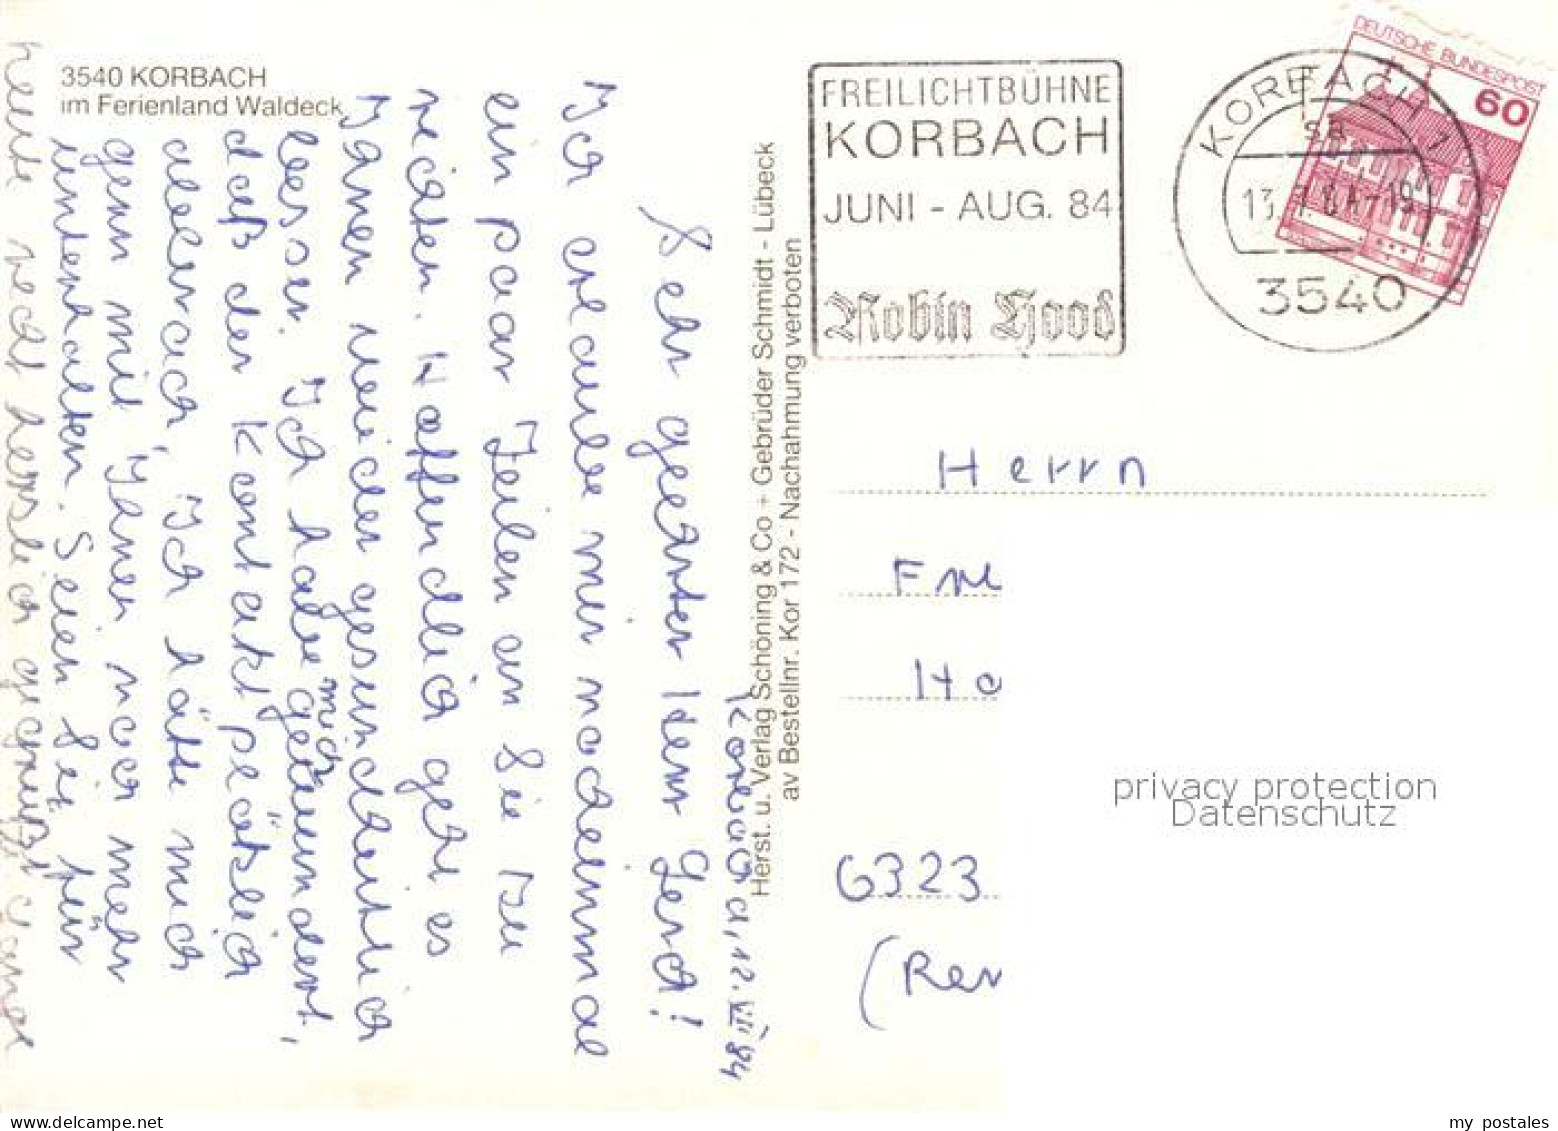 3540 KORBACH
im Ferienland Waldeck
Korbach, 12. VII 84
Sehr geehrter Herr Gerch!
Ich erlaube mir noch einmal
ein paar Zeilen an Sie zu
richten. Hoffendlich geht es
Ihnen wieder gesundheitlich
besser. Ich habe mich gewundert,
daß der Kontakt plötzlich
abbrach, Ich hätte mich
gern mit Ihnen noch mehr
unterhalten. Seien Sie für
heute recht herzlich gegrüßt
Herst. u. Verlag Schöning & Co + Gebrüder Schmidt - Lübeck
av Bestellnr. Kor 172 - Nachahmung verboten
FREILICHTBÜHNE
KORBACH
JUNI - AUG. 84
Robin Hood
KORBACH 1
sa
13. 84-19
3540
DEUTSCHE BUNDESPOST
60
Herrn
6323
(Ren
privacy protection
Datenschutz
my postales